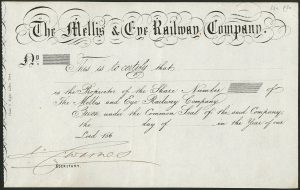 The Mellis & Eye Railway Company.
No
This is to certify that
is the Proprietor of the Share Number of
The Mellis and Eye Railway Company
Given under the Common Seal of the said Company,
the day of in the Year of our
Lord 186
SECRETARY.